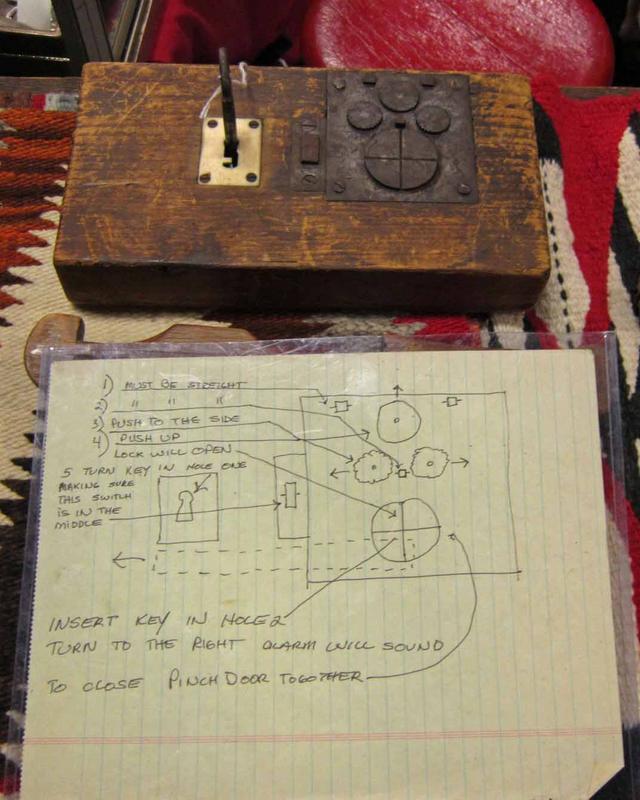 1) MUST BE STREIGHT
2) " " "
3) PUSH TO THE SIDE
4) PUSH UP
LOCK WILL OPEN
5 TURN KEY IN HOLE ONE
MAKING SURE
THIS SWITCH
IS IN THE
MIDDLE
INSERT KEY IN HOLE 2
TURN TO THE RIGHT ALARM WILL SOUND
TO CLOSE PINCH DOOR TOGOTHER